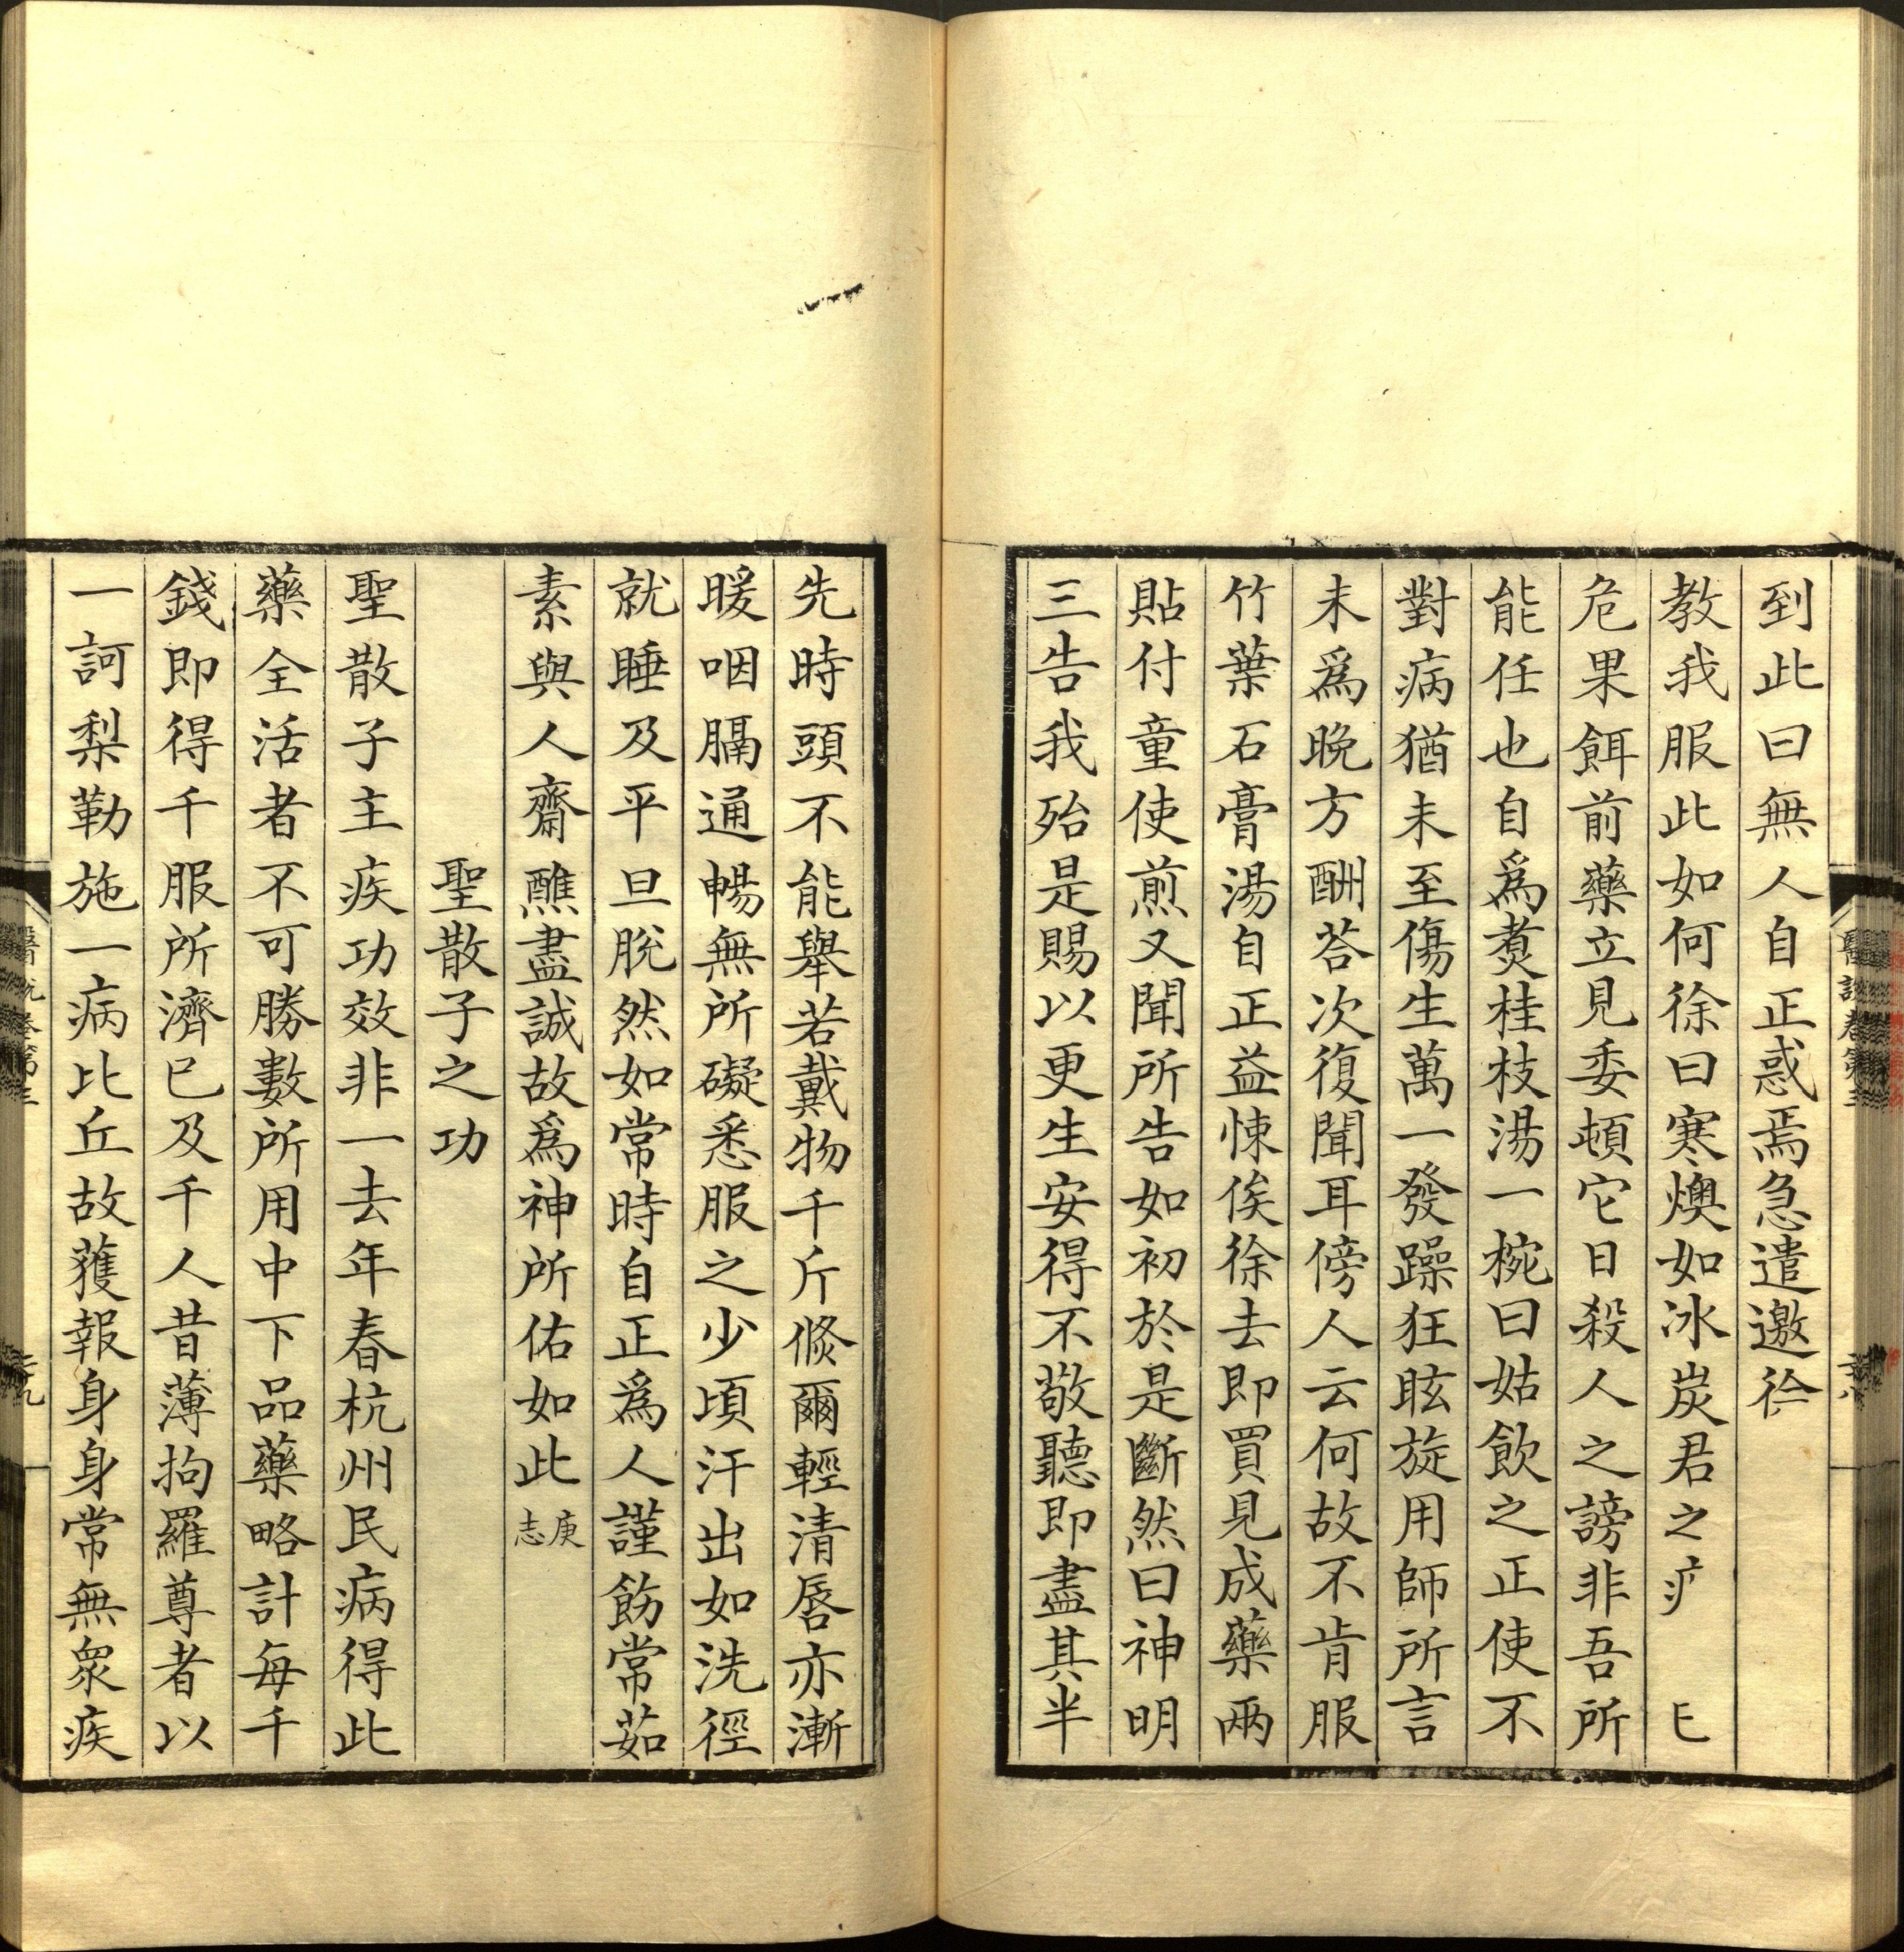 到此曰無人自正惑焉急遣邀徐
教我服此如何徐曰寒燠如冰炭君之 已
危果餌前藥立見委頓它日殺人之謗非吾所
能任也自爲煑桂枝湯一椀曰姑飲之正使不
對病猶未至傷生萬一發躁狂眩旋用師所言
未爲晚方酬荅次復聞耳傍人云何故不肯服
竹葉石膏湯自正益悚俟徐去即買見成藥兩
貼付童使煎又聞所告如初於是斷然曰神明
三告我殆是賜以更生安得不敬聽即盡其半
先時頭不能舉若戴物千斤倐爾輕清唇亦漸
暖咽膈通暢無所礙悉服之少頃汗出如洗徑
就睡及平旦脫然如常時自正爲人謹飭常茹
素與人齋醮盡誠故爲神所佑如此庚志
聖散子之功
聖散子主疾功效非一去年春杭州民病得此
藥全活者不可勝數所用中下品藥略計每千
錢即得千服所濟已及千人昔薄拘羅尊者以
一訶梨勒施一病比丘故獲報身身常無衆疾
醫說卷第三
二十九